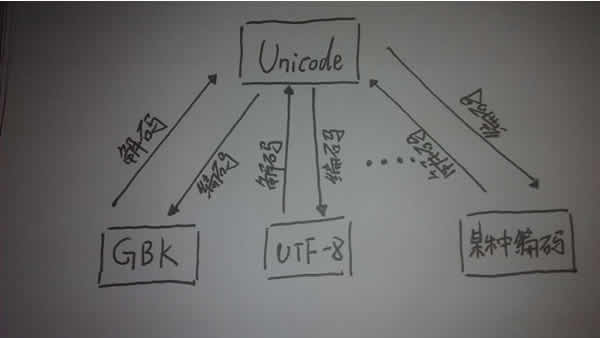 Unicode
解码
编码
解码
编码
解码
编码
GBK
UTF-8
某种编码